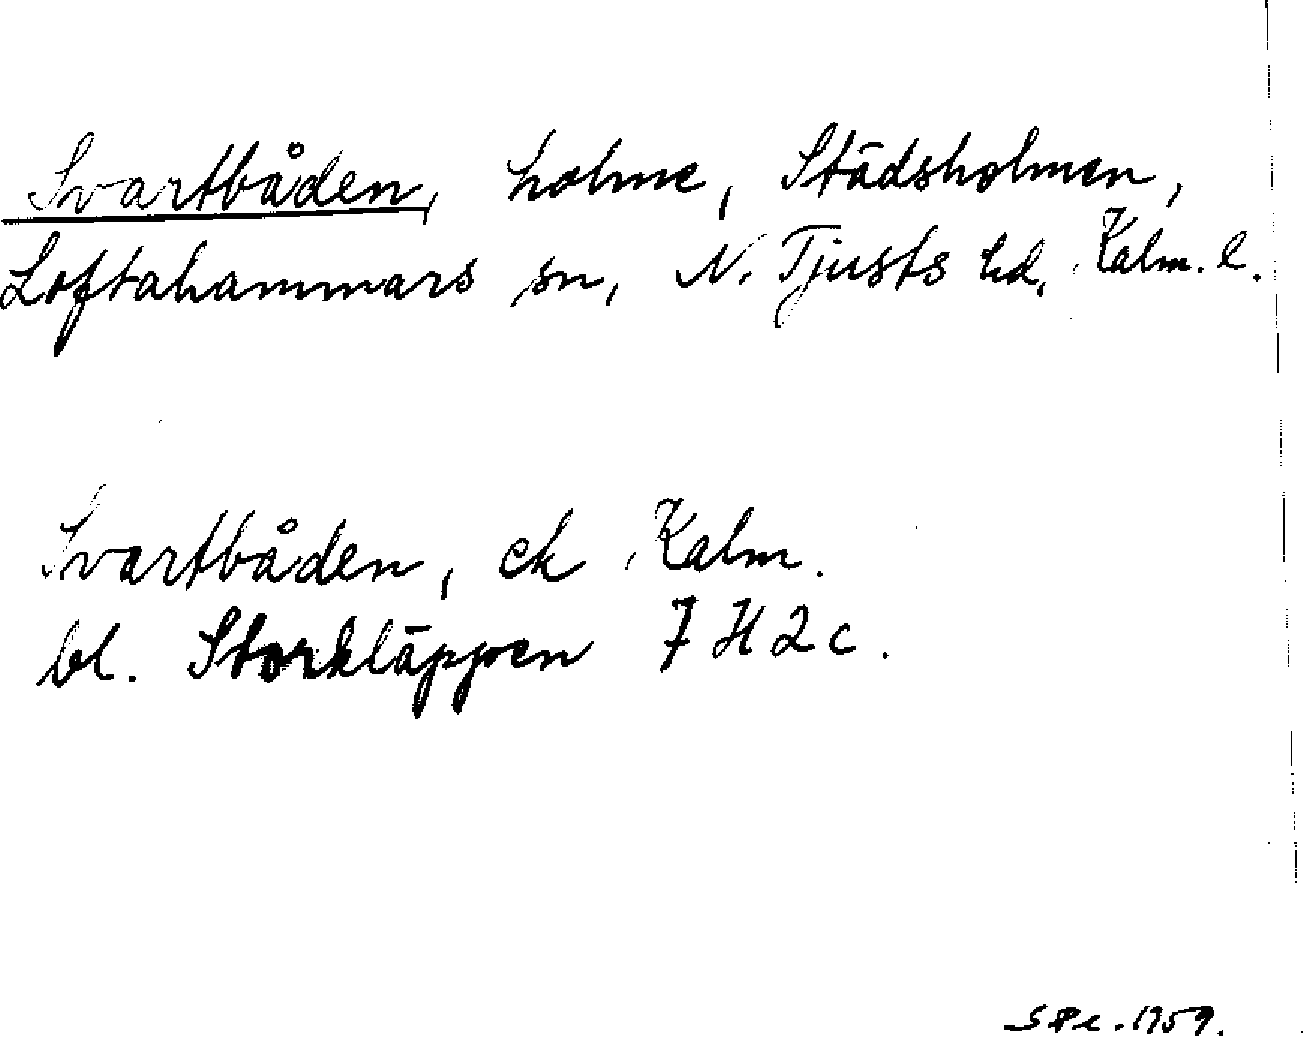 Svartbåden, holme, Städsholmen,
Loftahammars sn, N. Tjusts hd, Kalm. l.
Svartbåden, ek Kalm.
bl. Storkläppen 7 H 2 c.
1959.